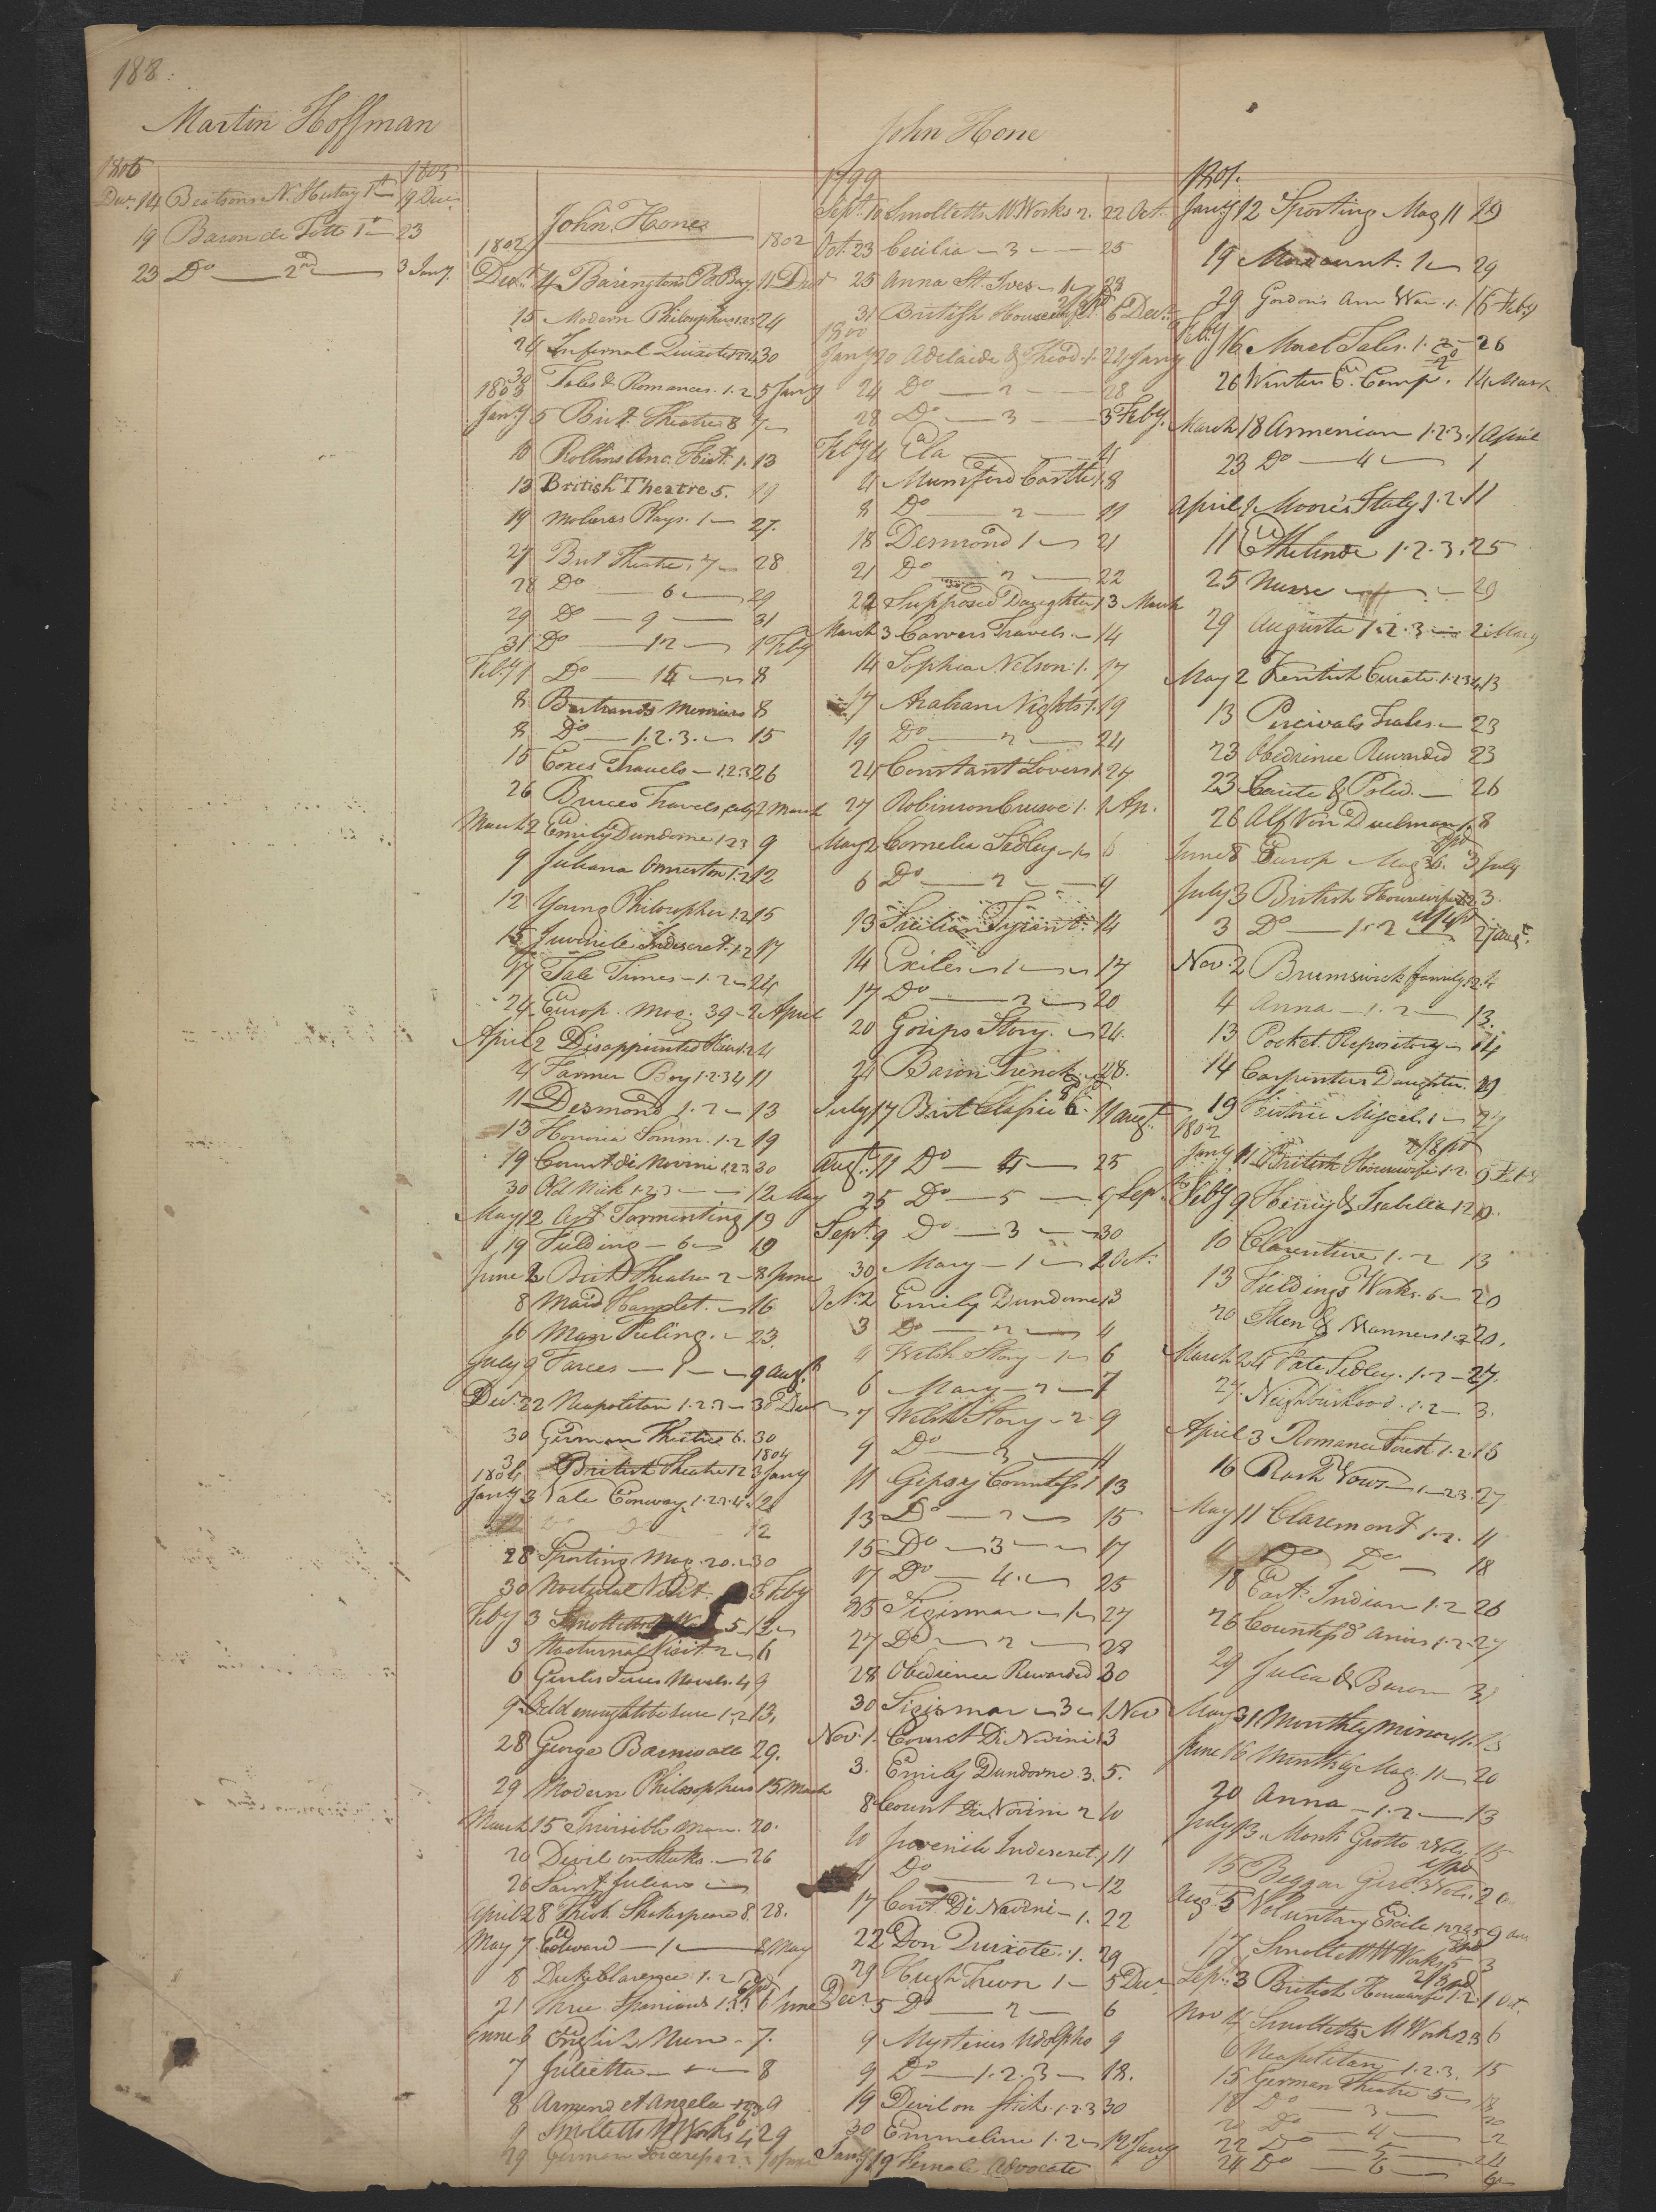 188.
Martin Hoffman
1805 1805
Decr. 14 Beatsons N. History 1st 19 Decr.
19 Baron de Tott 1st 23
23 Do 2nd 3 Jany.
John Hone
1802 1802
Decr. 4 Barington's B. Bay. 11 Decr
15 Modern Philosophers 1.2.3 24
24 Infernal Quixote 30
30 Tales & Romances. 1.2. 5 Jany
1803
Jany 5 Brit. Theatre 8 7
10 Rollins Anc. Hist. 1. 13
13 British Theatre 5. 19
19 Plays. 1 27.
27 Brit Theatre. 7 28
28 Do 6 29
29 Do 9 31
31 Do 12 1 Feby
Feby 1 Do 8
8 Bertrands Memoirs 8
8 Do 1.2.3. 15
15 Coxes Travels 1.2.3 26
26 Bruces Travels 2 March
March 2 Emily Dundorne 1 2 3 9
9 Juliana Ormeston 1.2 12
12 Young Philosopher 1.2 15
15 Juvenile Indiscret. 1.2 17
17 Tale Times 1.2 24
24 Europ. Mag. 39 2 April
April 2 Disappointed Heir 1.2 4
4 Farmer Boy 1.2.3.4 11
11 Desmond 1.2 13
13 Honoria Somm. 1.2 19
19 Count di Novini 1.2.3 30
30 Old Nick 1.2.3 12 May
May 12 Art Tormenting 19
19 Fielding 6 19
June 2 Brit Theatre 2 8 June
8 Maid Hamlet. 16
16 Man Feeling. 23.
July 9 Farces 1 9 Augt
Decr. 22 Neapolitan 1.2.3 30 Decr
30 German Theatre 6. 30
1804
1804 3 British Theatre 12 3 Jany
Jany 3 Vale Conway. 1.2.3.4. 12
12 Do Do 12
28 Sporting Mag. 20. 30
30 Nocturnal Visit. 3 Feby
Feby 3 Smolletts 5 12
3 Nocturnal Visit 2 6
6 Genlis Novels. 4 9
9 Odd enough to be sure 1.2 13,
28 George Barnwell 29.
29 Modern Philosophers 15 March
March 15 Invisible Man. 20.
20 Devil on Sticks. 26
26 Saint Julian
April 28 Shakespeare 8. 28.
May 7 Edward 1 8 May
8 Duke Clarence 1.2
21 Three Spaniards 6 June
June 6 English Nun 7.
7 Julietta 8
8 Armand et Angela 9
9 Smolletts M Works 4 29
29 German
John Hone
1799
Sept. 10 Smolletts M Works 2. 22 Oct.
Oct. 23 Cecilia 3 25
25 Anna St. Ives 1 28
31 British Housewife 6 Decr.
1800
Jany 20 Adelaide & Theod. 1. 24 Jany
24 Do 2 28
28 Do 3 3 Feby.
Feby 4 Ela 4
4 Munsterd Castle 1. 8
8 Do 2 11
18 Desmond 1 21
21 Do 2 22
22 Supposed Daughter 1 3 March
March 3 Carvers Travels. 14
14 Sophia Nelson. 1. 17
17 Arabian Nights 1. 19
19 Do 2 24
24 Constant Lovers 1 27
27 Robinson Crusoe 1. 1 Ap.
May 2 Cornelia Sedley 1 6
6 Do 2 9
13 Sicilian Tyrant 14
14 Exiles 1 17
17 Do 2 20
20 Gosips Story. 24.
24 Baron Trenck. 28.
July 17 Brit Clasic 6. 11 augt.
Augt. 11 Do 4 25
25 Do 5 9 Septr.
Sept 9 Do 3 30
30 Mary 1 2 Oct.
Oct. 2 Emily Dundorne 1 3
3 Do 2 4
4 Welsh Story 1 6
6 Mary 2 7
7 Welsh Story 2 9
9 Do 3 11
11 Gipsey Countess 1 13
13 Do 2 15
15 Do 3 17
17 Do 4. 25
25 Sigismar 1 27
27 Do 2 28
28 Obedience Rewarded 30
30 Sigismar 3 1 Nov
Nov. 1. Count Di Novini 1 3
3. Emily Dundorne. 3. 5.
8 Count Di Novini 2 10
10 Juvenile Indescret. 1 11
11 Do 2 12
17 Cont Di Novini 1. 22
22 Don Quixote. 1. 29
29 Hugh Trevor 1 5 Decr
Decr. 5 Do 2 6
9 Mysteries Udolpho 9
9 Do 1.2.3 18.
19 Devil on Stick. 1.2.3 30
30 Emmeline 1.2 12 Jany
Jany 19 Female Advocate
1801.
Jany 12 Sporting Mag 11 19
19 Mordaunt. 1 29
29 Gordons Am War. 1. 16 Feby
Feby 16 Moral Tales. 1. 2 26
26 Winter E. Comp. 14 March
March 18 Armenian 1.2.3. 1 April
23 Do 4 1
April 1 Moores Italy 1.2. 11
11 Ethelinde 1.2.3. 25
25 Nurse 29
29 Augusta 1.2.3 2 May
May 2 Kentish Curate. 1.2.3.4 13
13 Percivals Tales 23
23 Obedience Rewarded 23
23 Carite & Polid. 26
26 Alf Von Duelman 1. 8
June 8 Europ Mag 36. 3 July
July 3 British Housewife 1.2 3.
3 Do 1.2 2 augt.
Nov. 2 Brunswick family 1.2. 4
4 Anna 1.2 13.
13 Pocket Repository 14
14 Carpenters Daughter. 19
19 Miscel. 1 27
1802
Jany 11 British Housewife 1.2. 9 Feb
Feby 9 Henry & Isabella 1 2 10.
10 Clarentine 1.2 13
13 Fieldings Works. 6 20
20 Men & Manners 1.2 20.
March 24 Fate Sedley. 1.2 27.
27. Neighbourhood. 1.2 3.
April 3 Romance Forest 1.2. 16
16 Rash Vows 1 2 3. 27
May 11 Claremont 1.2. 11
11 Do Do 18
18 East Indian 1.2 26
26 Countess d' Anvis 1.2 27
29 Julia & Baron 31
May 31. Monthly Mirror 11. 15
June 16 Monthly Mag. 11 20
20 Anna 1.2 13
July 13. Monks Grotto 2 Vol. 15
15 Beggar Girl. 3 Vols. 20
Aug. 5 Voluntary Exile 1 2 3 4 5 9 au
17 Smollett M Works 5 3
Sept. 3 British Housewife 1.2. 1 Oct.
Nov 4 Smolletts M Work 2.3 6
6 Neapolitan 1.2.3. 15
15 German Theatre 5 18
18 Do 3 20
20 Do 4 22
22 Do 5 24
24 Do 6